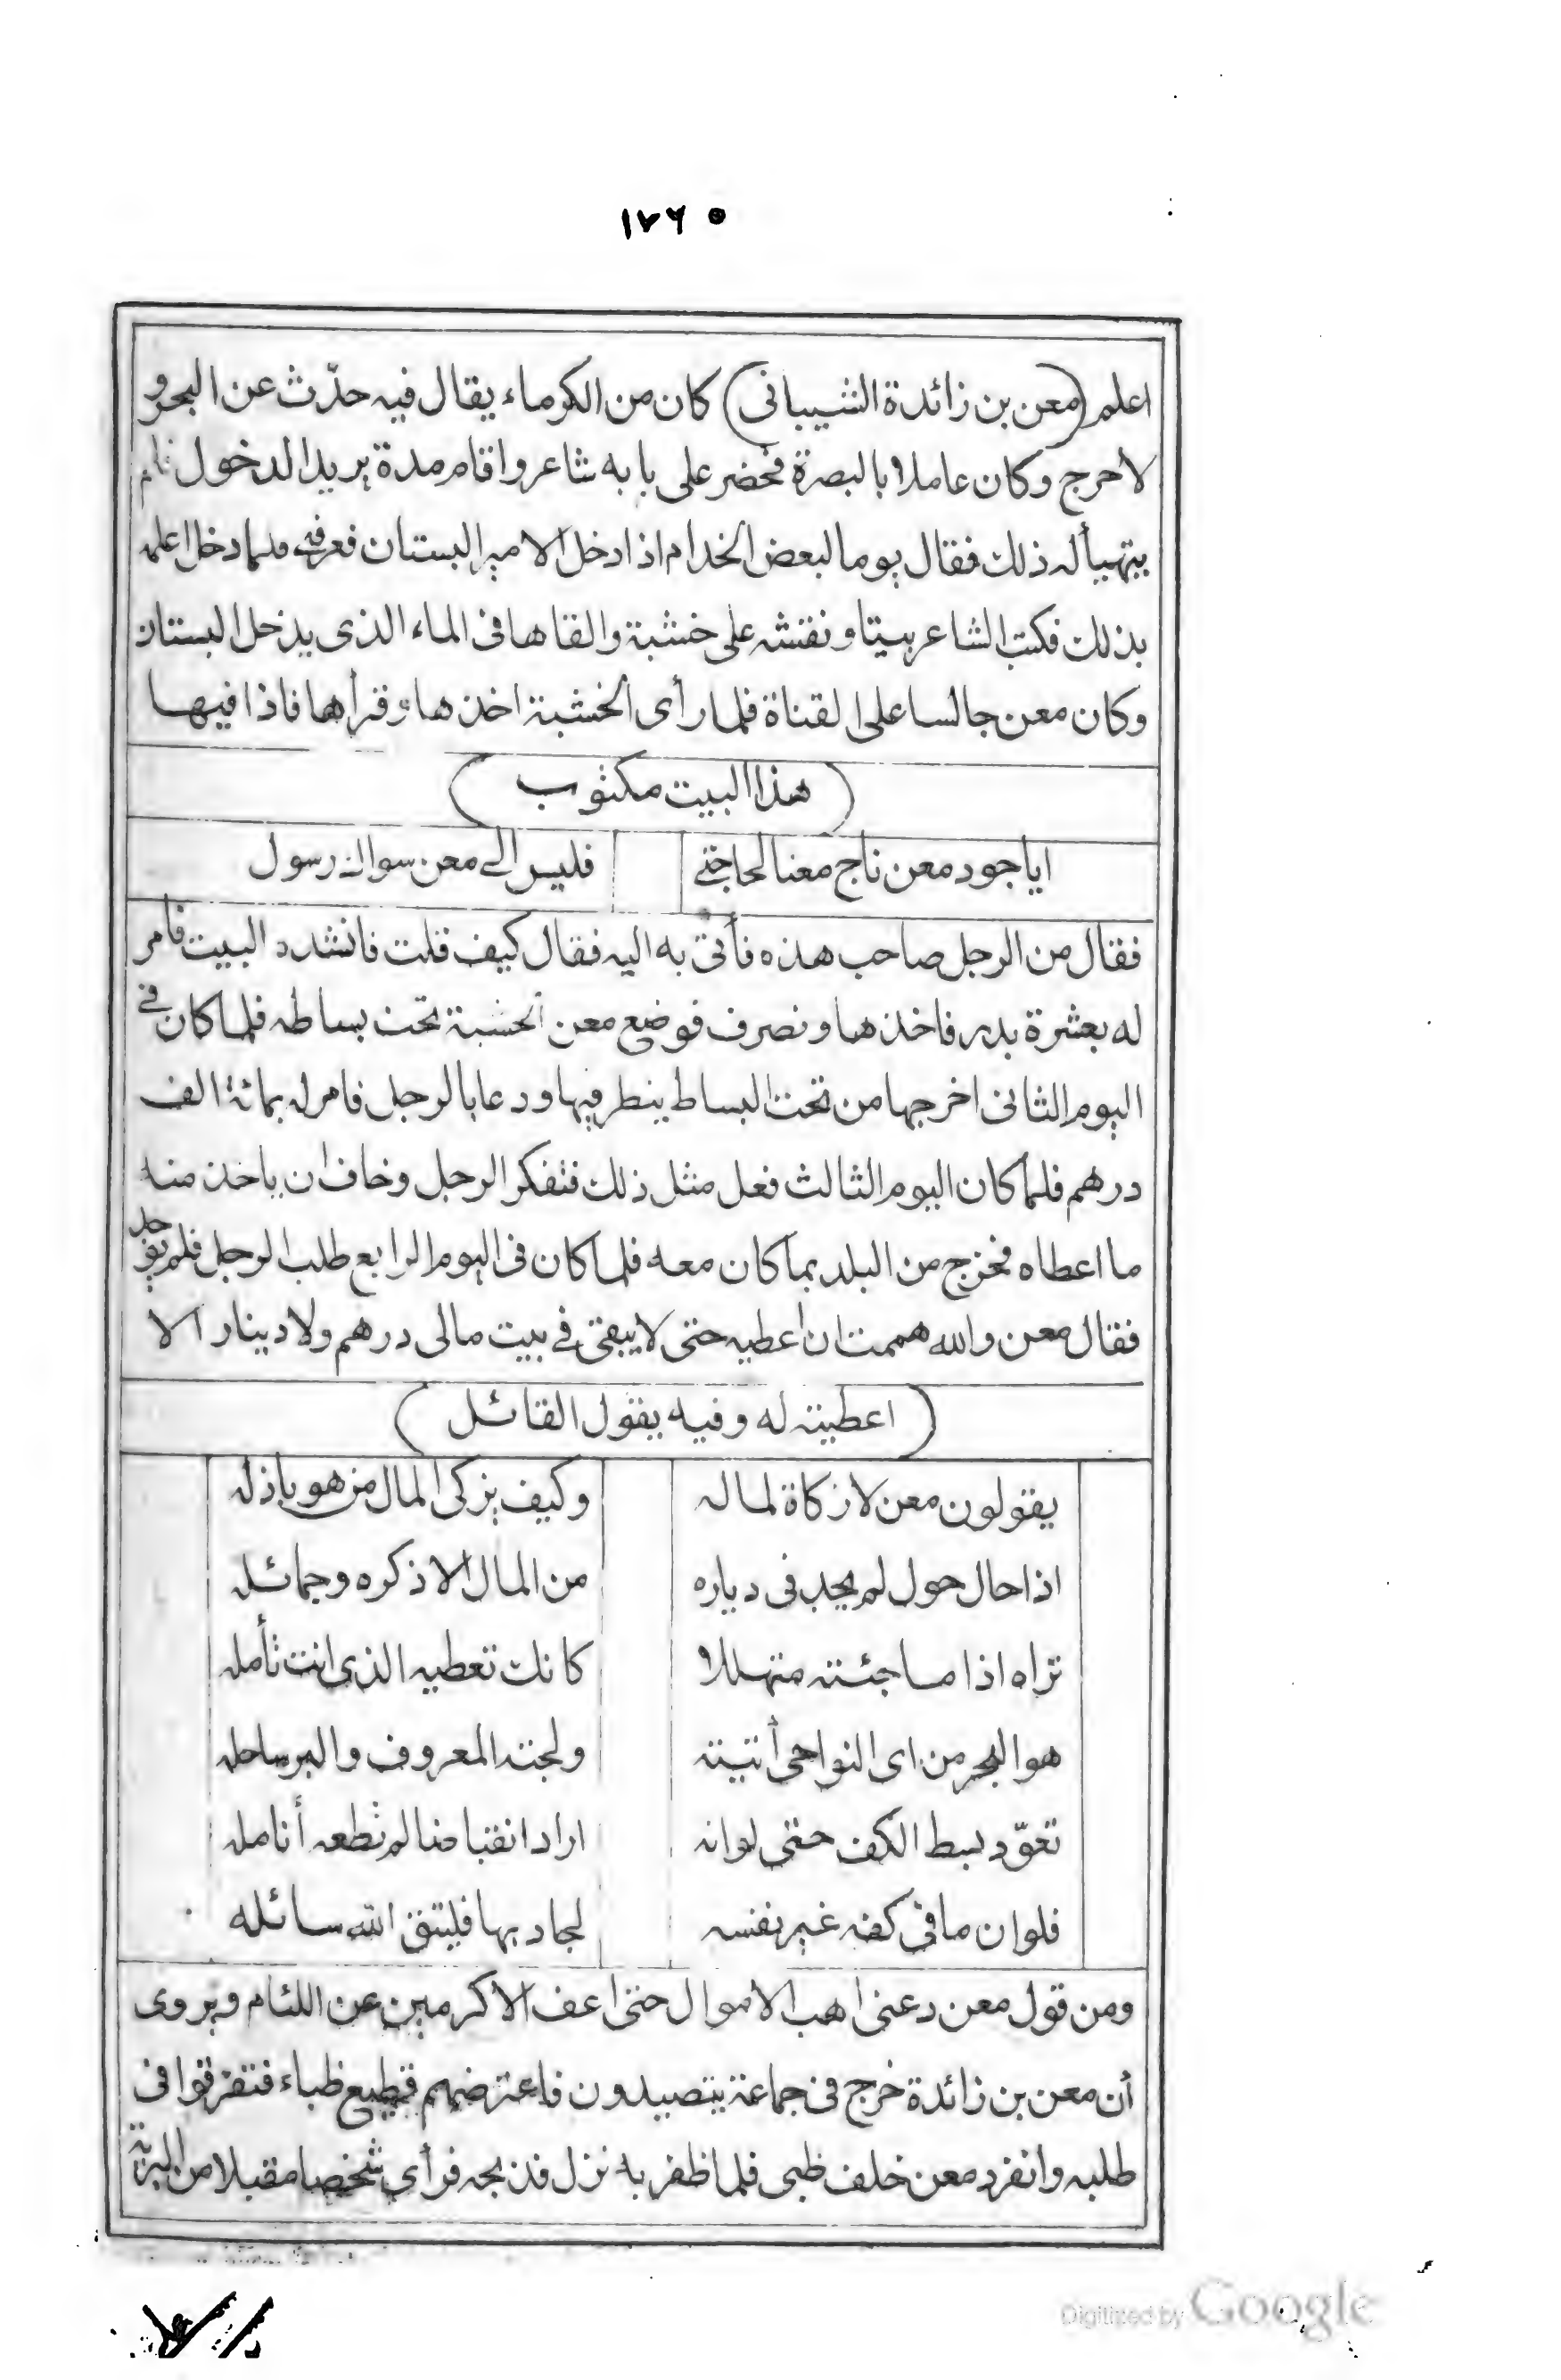 ١٧٦٥
اعلم (معن بن زائدة الشيبانى) كان من الكرماء يقال فيه حدّث عن البحر و
لا حرج وكان عاملا بالبصرة فحضر على بابه شاعر واقام مدة يريد الدخول فلم
يتهيأ له ذلك فقال يوما لبعض الخدام اذا دخل الامير البستان فعرفنى فلما دخل اعلمه
بذلك فكتب الشاعر بيتا و نقشه على خشبة والقاها فى الماء الذى يدخل البستان
وكان معن جالسا على القناة فلما رأى الخشبة اخذها و قرأها فاذا فيها
(هذا البيت مكتوب)
ايا جود معن ناج معنا لحاجتى فليس الى معن سواك رسول
فقال من الرجل صاحب هذه فأتى به اليه فقال كيف قلت فانشده البيت فامر
له بعشرة بدر فاخذها و نصرف فوضع معن الخشبة تحت بساطه فلما كان فى
اليوم الثانى اخرجها من تحت البساط ينظر فيها ودعا بالرجل فامر له بمائة الف
درهم فلما كان اليوم الثالث فعل مثل ذلك فتفكر الرجل وخاف ان ياخذ منه
ما اعطاه فخرج من البلد بما كان معه فلما كان فى اليوم الرابع طلب الرجل فلم يوجد
فقال معن والله هممت ان اعطيه حتى لا يبقى فى بيت مالى درهم ولا دينار الا
(اعطيته له وفيه يقول القائل)
يقولون معن لا زكاة لماله وكيف يزكى المال من هو باذله
اذا حال حول لم يجد فى دياره من المال الا ذكره وجمائله
تراه اذا ما جئته متهللا كانك تعطيه الذى انت تأمله
هو البحر من اى النواحى أتيته ولجته المعروف والبر ساحله
تعوّد بسط الكف حتى لو انه اراد انقباضا لم تطعه أنامله
فلو ان ما فى كفه غير نفسه لجاد بها فليتق الله سائله
ومن قول معن دعنى اهب الاموال حتى اعف الاكرمين عن اللئام ويروى
أن معن بن زائدة خرج فى جماعة يتصيدون فاعترضهم قطيع ظباء فتفرقوا فى
طلبه وانفرد معن خلف ظبى فلما ظفر به نزل فذبحه فرأى شخصا مقبلا من البرية
Digitized by Google